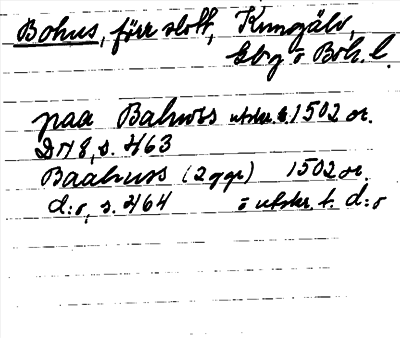 Bohus, förr slott, Kungälv,
Gbg o Boh. l.
paa Bahwss utskr. t. 1502 or.
DN 8, s. 463
Baahuss (2 ggr) 1502 or.
d:o, s. 464 i utskr. t. d:o